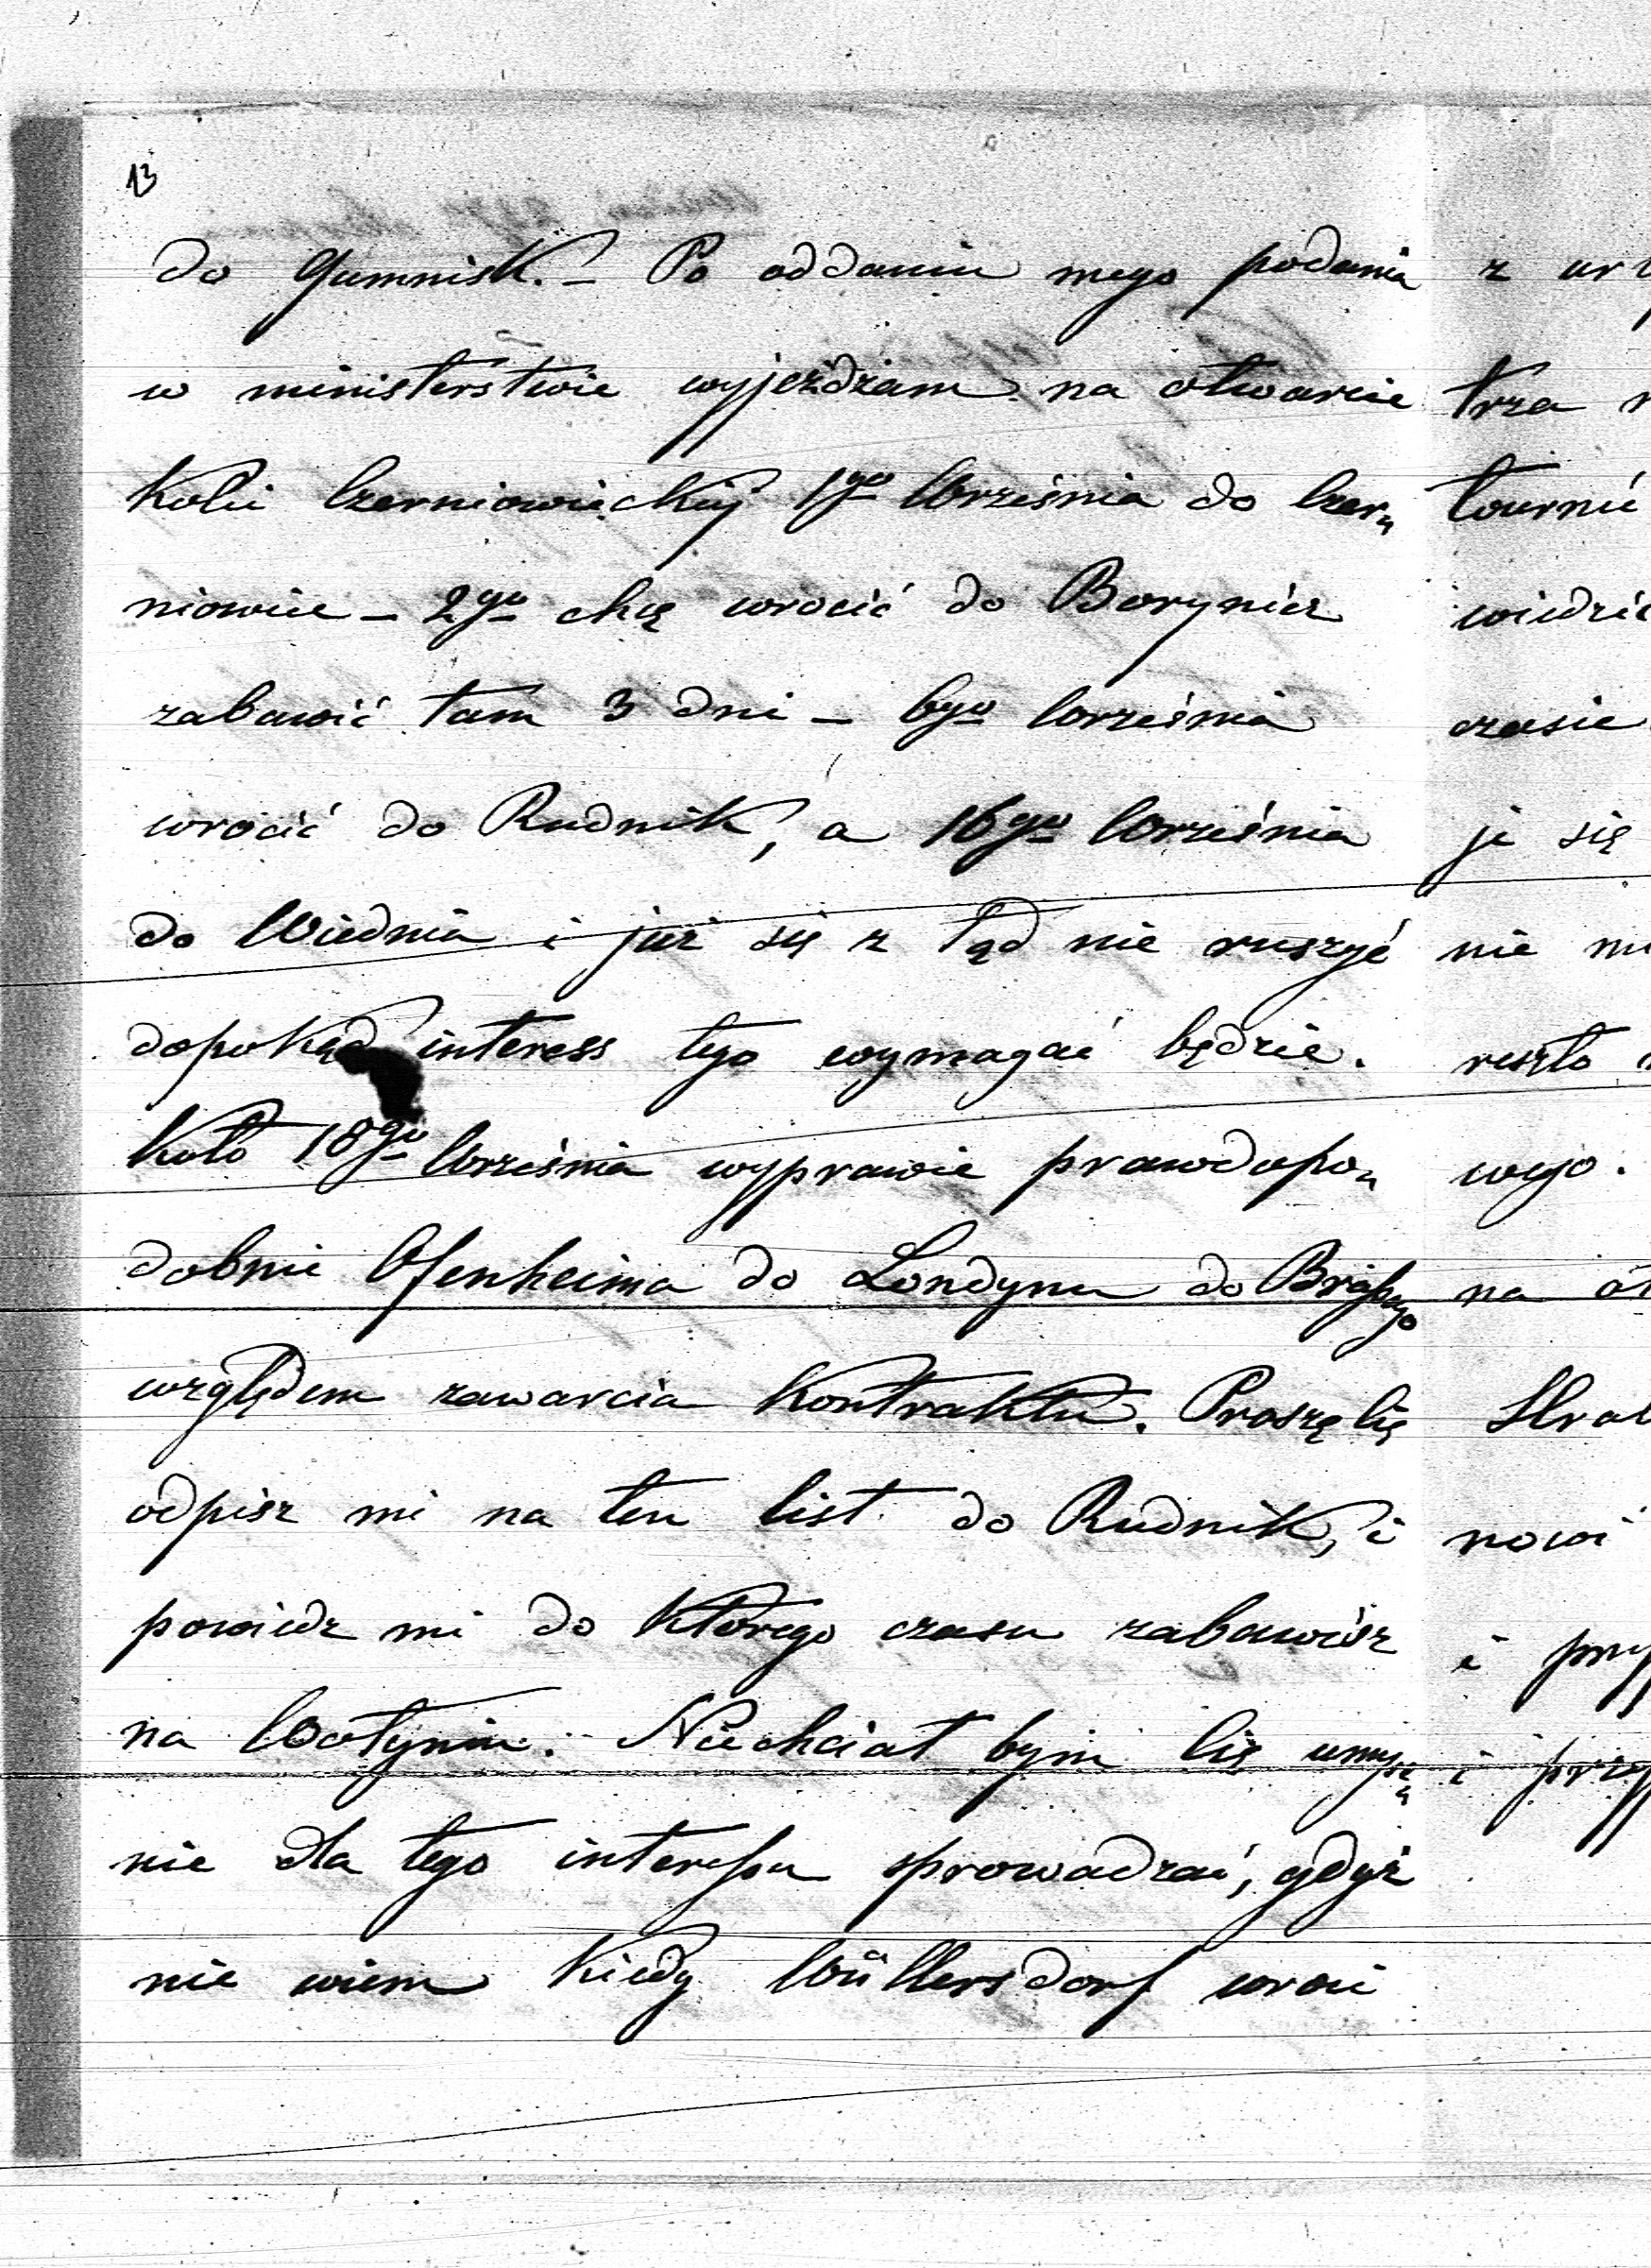 13
do Gumnisk. – Po oddaniu mego podania
w ministerstwie wyjeżdżam na otwarcie
Kolei Czerniowieckiej 1go Września do Czer„
niowiec – 2go chcę wrócić do Borynicz
zabawić tam 3 dni – 6go Września
wrócić do Rudnik, a 16go Września
do Wiednia i już się z tąd nie ruszyć
dopokąd interess tego wymagać będzie.
Koło 18go Września wyprawię prawdopo„
dobnie Ofenheima do Londynu do
względem zawarcia Kontraktu. Proszę Cię
odpisz mi na ten list do Rudnik, i
powiedz mi do Którego czasu zabawisz
na Wołyniu. Niechciał bym Cię umyśl„
nie dla tego interessu sprowadzać, gdyż
nie wiem Kiedy Wüllersdorf wróci
z
trza
tournée
czasie
je się
nie
reszto
wego.
na
nowi
i
i